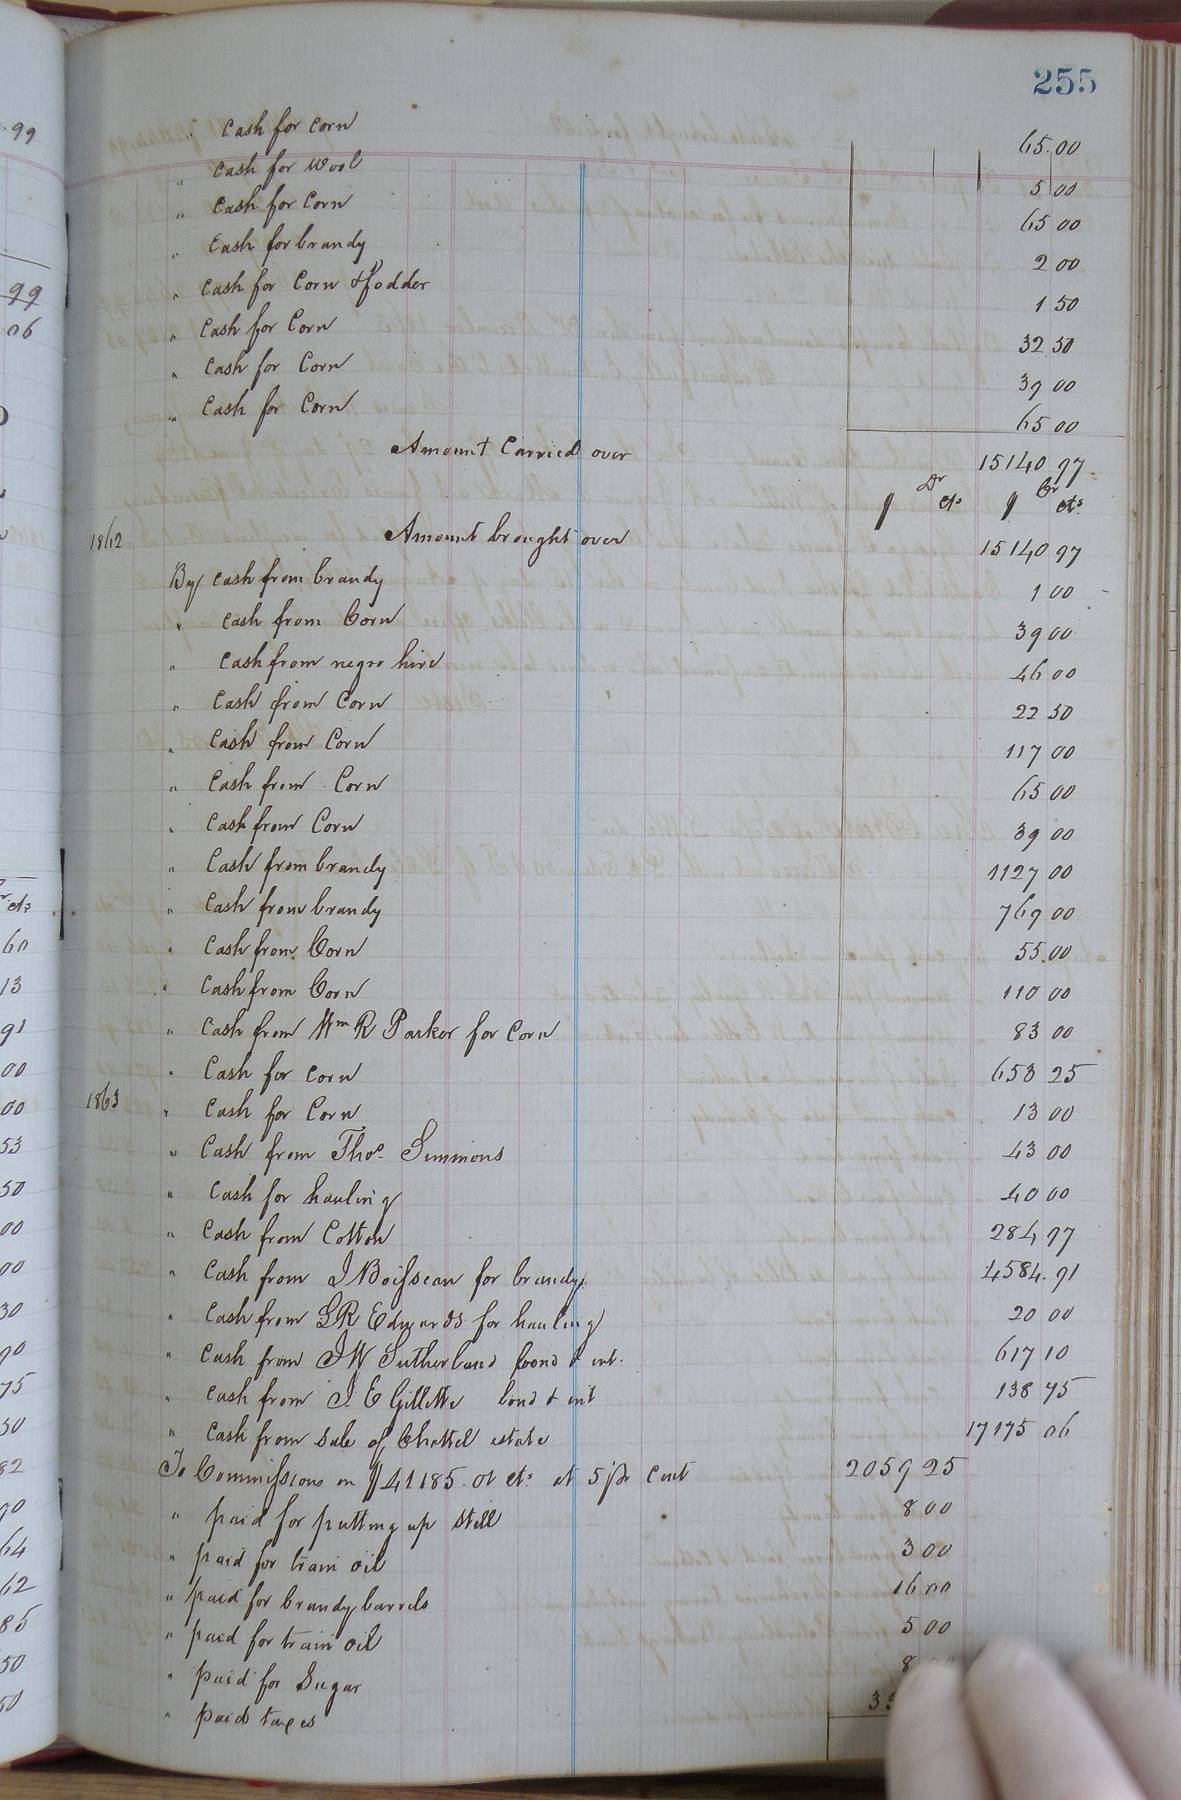 255
" Cash for Corn 65.00
" Cash for Wool 5 00
" Cash for Corn 65 00
" Cash for brandy 2 00
" Cash for Corn & fodder 1 50
" Cash for Corn 32 50
" Cash for Corn 39 00
" Cash for Corn 65 00
Amount Carried over 15140 97
$ Dr cts $ Cr cts
1862 Amount brought over 15140 97
By cash from brandy 1 00
" Cash from Corn 39 00
" Cash from negro hire 46 00
" Cash from Corn 22 50
" Cash from Corn 117 00
" Cash from Corn 65 00
" Cash from Corn 39 00
" Cash from brandy 1127 00
" Cash from brandy 769 00
" Cash from Corn 55.00
" Cash from Corn 110 00
" Cash from Wm R Parker for Corn 83 00
" Cash for Corn 653 25
1863 " Cash for Corn 13 00
" Cash from Thos. Simmons 43 00
" Cash for hauling 40 00
" Cash from Cotton 284 97
" Cash from J Boisseau for brandy 4584.91
" Cash from G R Edwards for hauling 20 00
" Cash from J W Sutherland bond & int. 617 10
" Cash from J. E Gillette bond & int 138 75
" Cash from Sale of Chattel estate 17175 06
To Commissions on $41185.01 cts at 5 pr Cent 2059 25
" paid for putting up Still 8 00
" paid for train oil 3 00
" paid for brandy barrels 16 00
" paid for train oil 5 00
" paid for Sugar 8
" paid taxes 33
99
99
06
cts
60
13
91
00
00
53
50
00
00
30
90
75
50
82
90
64
62
85
50
50